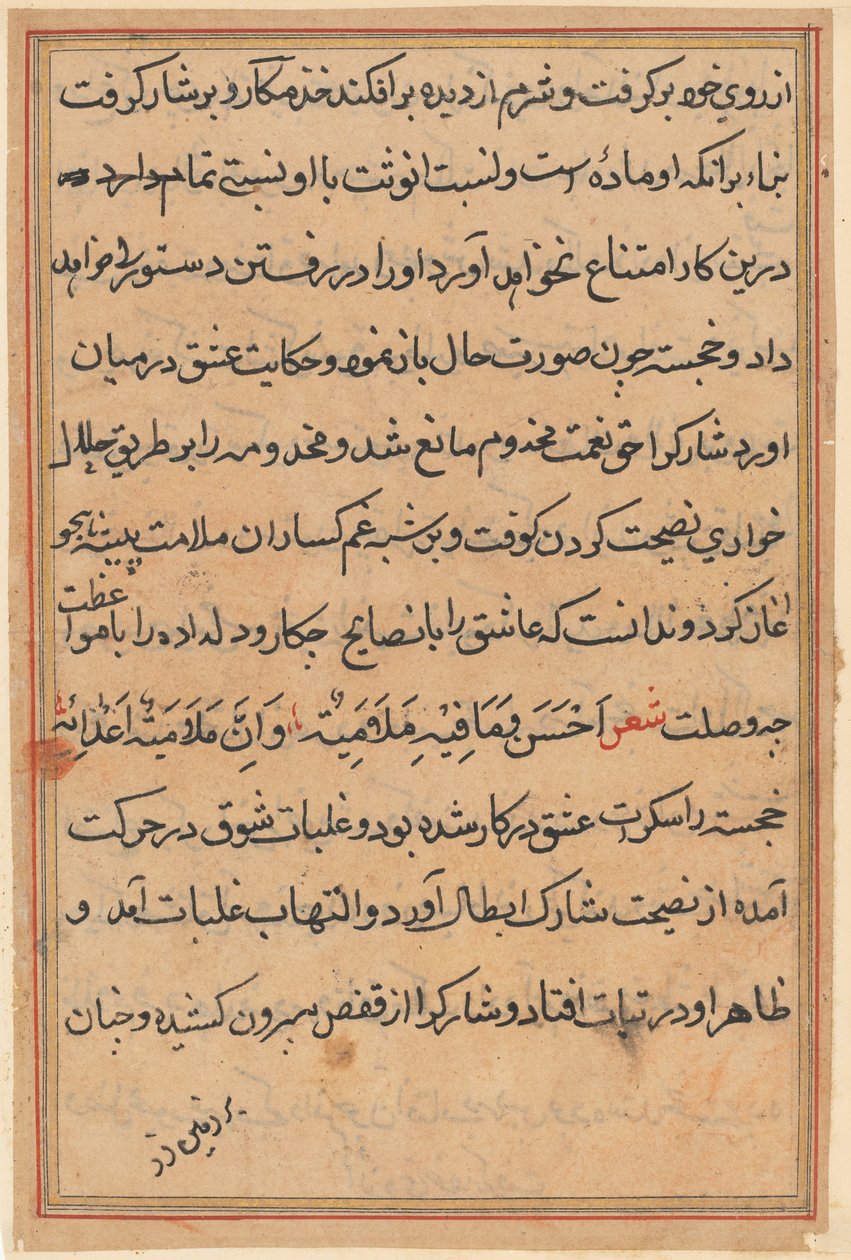 از روي خود برگرفت و شرم از ديده برافكند خذه مكار و بر شارك رفت
بناء برانكه او مادهٔ است و لنسبت انوثت با او نسبتے تمام دارد
درين كار امتناع نخواهد آورد او را در رفتن دستورى خواهد
داد و خجسته چون صورت حال باز نمود و حكايت عشق درميان
اورد شارك را حق نعمت مخدوم مانع شد و مخدومه را بر طريق حلال
خواري نصيحت كردن كوفت و بر شبه غم كساران ملامت
اغاز كرد و ندانست كه عاشق را با نصايح چكار و دلداده را با مواعظت
چه وصلت شعر اَحْسَنَ فِيْهِ مَلَامِيَة وَاِنَّ مَلَامَيَة اَعْدَائِه
خجسته را سكرات عشق در كار شده بود و غلبات شوق در حركت
آمده از نصيحت شارك ابطال آورد و التهاب غلبات آمد و
ظاهر او در تبات افتاد و شارك را از قفص بيرون كشيده و چنان
بر زمين زد